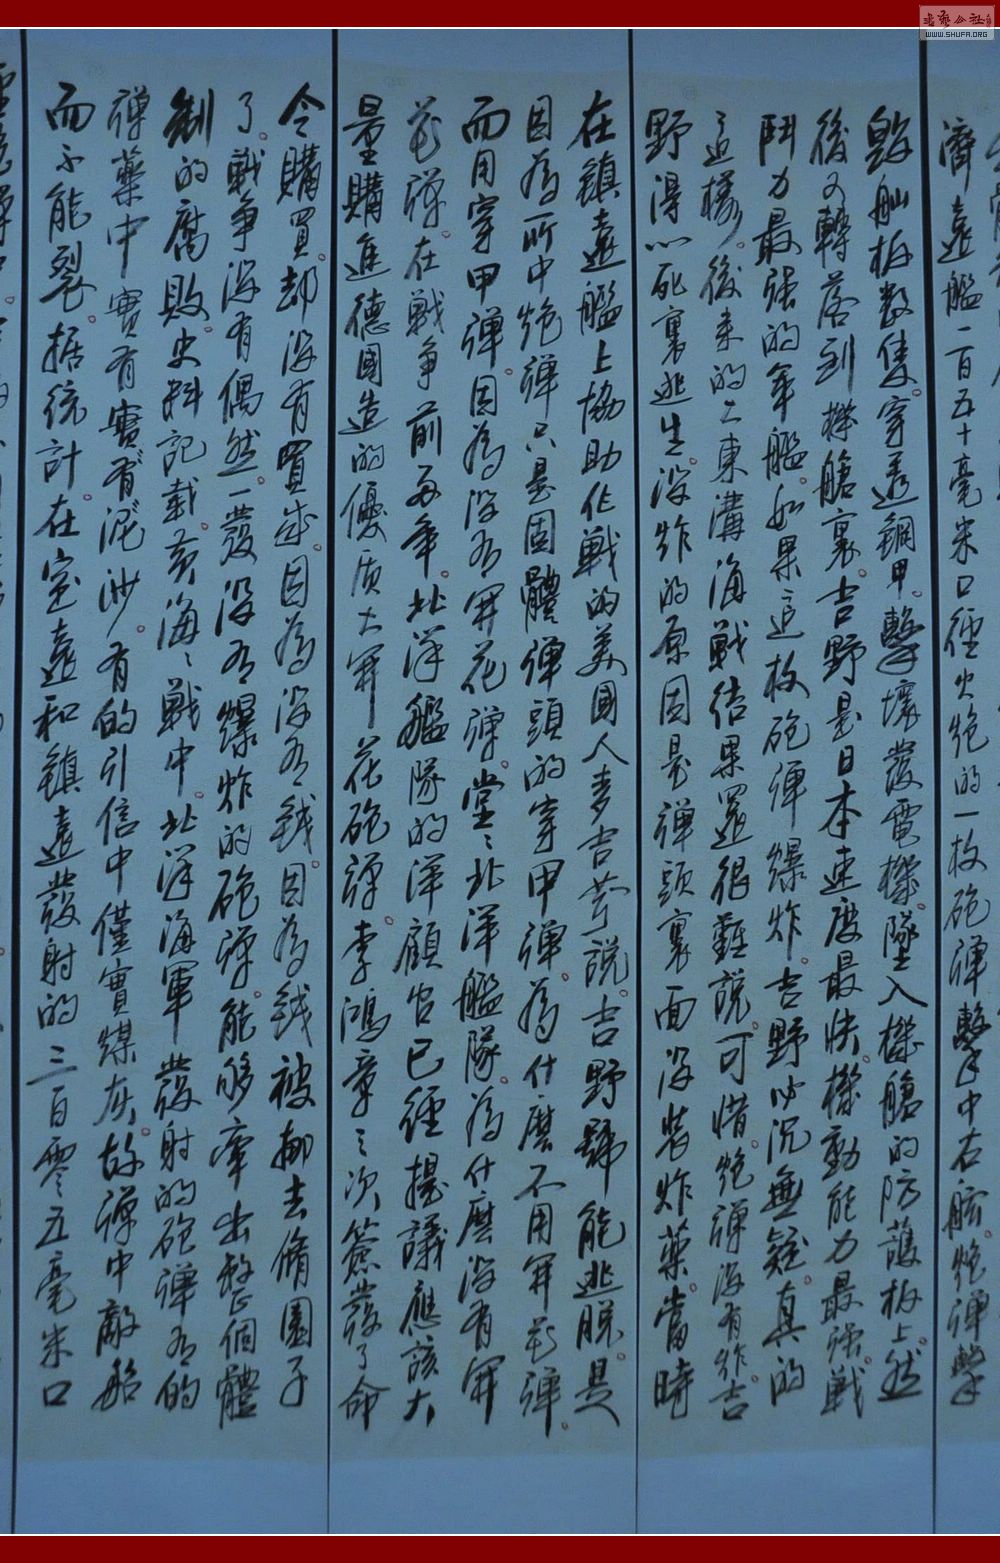 濟遠艦一百五十毫米口徑火炮的一枚砲彈擊中右舷。炮彈擊
毀舢板數隻。穿透鋼甲。擊壞發電機。墜入機艙的防護板上。然
後又轉落到機艙裏。吉野是日本速度最快。機動能力最强。戰
鬥力最强的軍艦。如果這枚砲彈爆炸。吉野必沉無疑。真的
這樣。後來的大東溝海戰結果還很難說。可惜炮彈没有炸。吉
野得以死裏逃生。没炸的原因是彈頭裏面没裝炸藥。當時
在鎮遠艦上協助作戰的美國人麥吉芬説。吉野號能逃脱。是
因為所中炮彈。只是固體彈頭的穿甲彈。為什麽不用開花彈。
而用穿甲彈。因為没有開花彈。堂堂北洋艦隊。為什麽没有開
花彈。在戰争前兩年。北洋艦隊的洋顧官已經提議應該大
量購進德國造的優质大開花砲彈。李鴻章三次簽發了命
令購買。却没有買成。因為没有錢。因為錢被挪去脩園子
了。戰争没有偶然。一發没有爆炸的砲彈。能够牽出整個體
制的腐敗。史料記載。黄海海戰中。北洋海軍發射的砲彈有的
彈藥中實有實有泥沙。有的引信中僅實煤灰。故彈中敵船
而不能裂。据統計。在定遠和鎮遠發射的三百零五毫米口
WWW.SHUFA.ORG